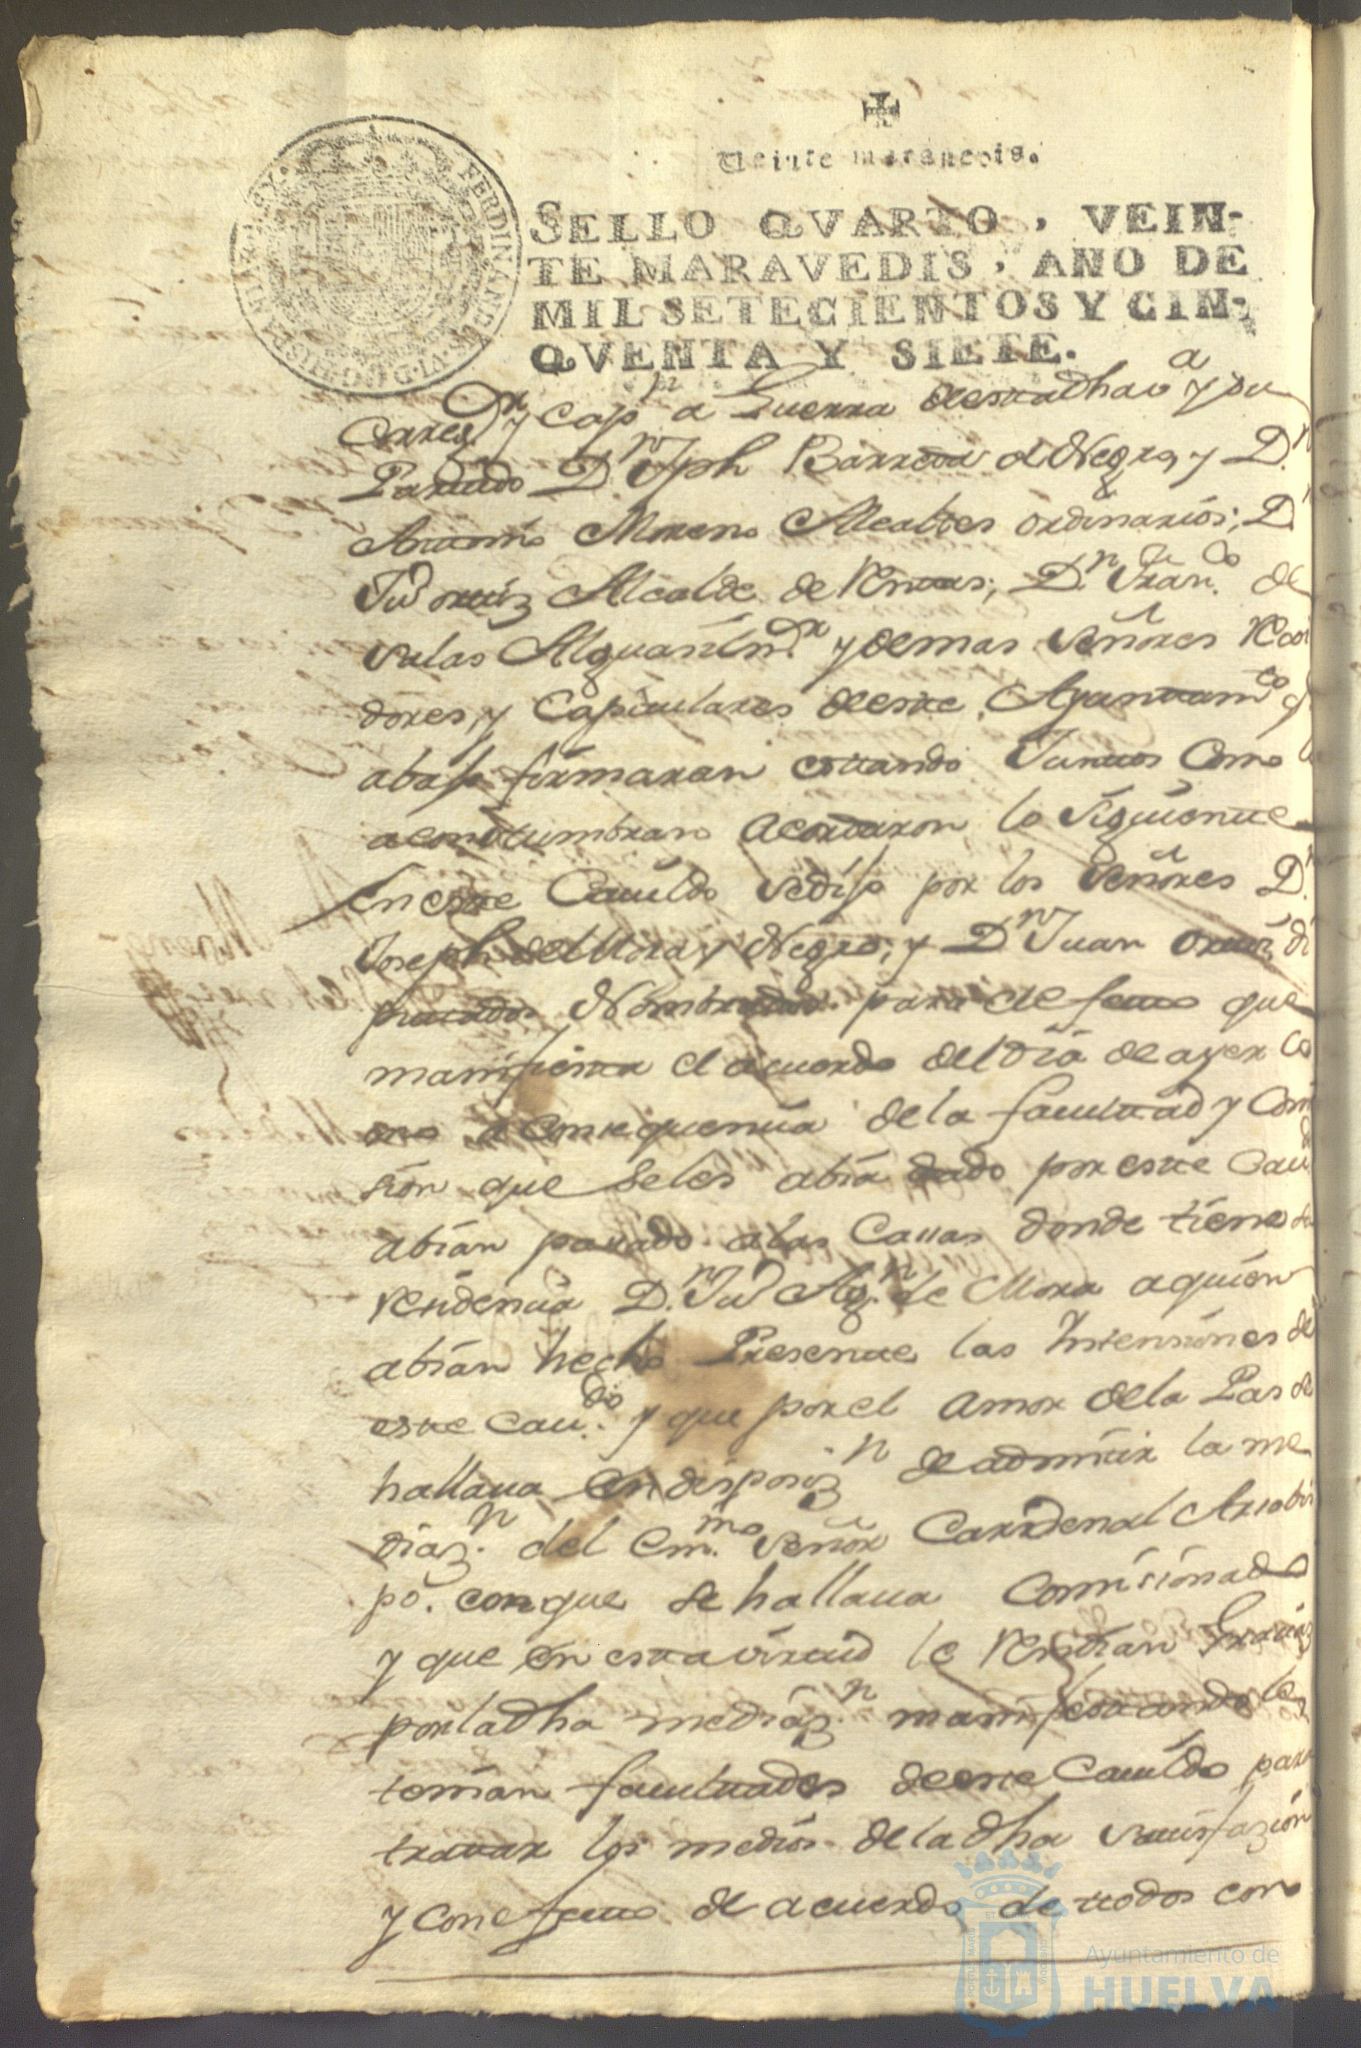 ✠
Veinte maravedis.
SELLO QVARTO, VEIN-
TE MARAVEDIS, AÑO DE
MIL SETECIENTOS Y CIN-
QVENTA Y SIETE.
FERDINANDUS.VI.D.G.HISPANIAR.REX.
Corregdr y Capn a Guerra desta dha va y su
Partido Dn Jph Barreda el Negro, y Dn
Antonio Moreno Alcaldes ordinarios; Dn
Jud ortiz Alcalde de Rentas; Dn Franco de
salas Alguasil mr y demas señores Reoi
dores, y Capitulares deeste Ayuntamto q
abajo firmaran estando Juntos Como
aconstumbran acordaron lo siguiente
En este Cavildo sedijo por los señores Dn
Joseph de Mora y Negro; y Dn Juan ortiz di
putados Nombrados para el efecto que
manifiesta el acuerdo del dia de ayer Co
mo a Consequensia de la facultad y Comi
sion que seles abia dado por este Cavdo
abian pasado a las Casas donde tiene su
residencia Dn Jud Agn de Mora aquien
abian hecho Presente las Intensiones de
este Cavdo. y que por el amor dela Pas se
hallava en disposizn de admitir la me
diazn. del Emmo señor Carrdenal Arzobis
po. conque se hallava Comisionado
y que en esta virtud le rendian Grazias
por la dha mediazn. manifestando le
tenian facultades deeste Cavildo para
tratar los medios de la dha satisfazion
y Conefecto de acuerdo de todos con
Ayuntamiento de
HUELVA